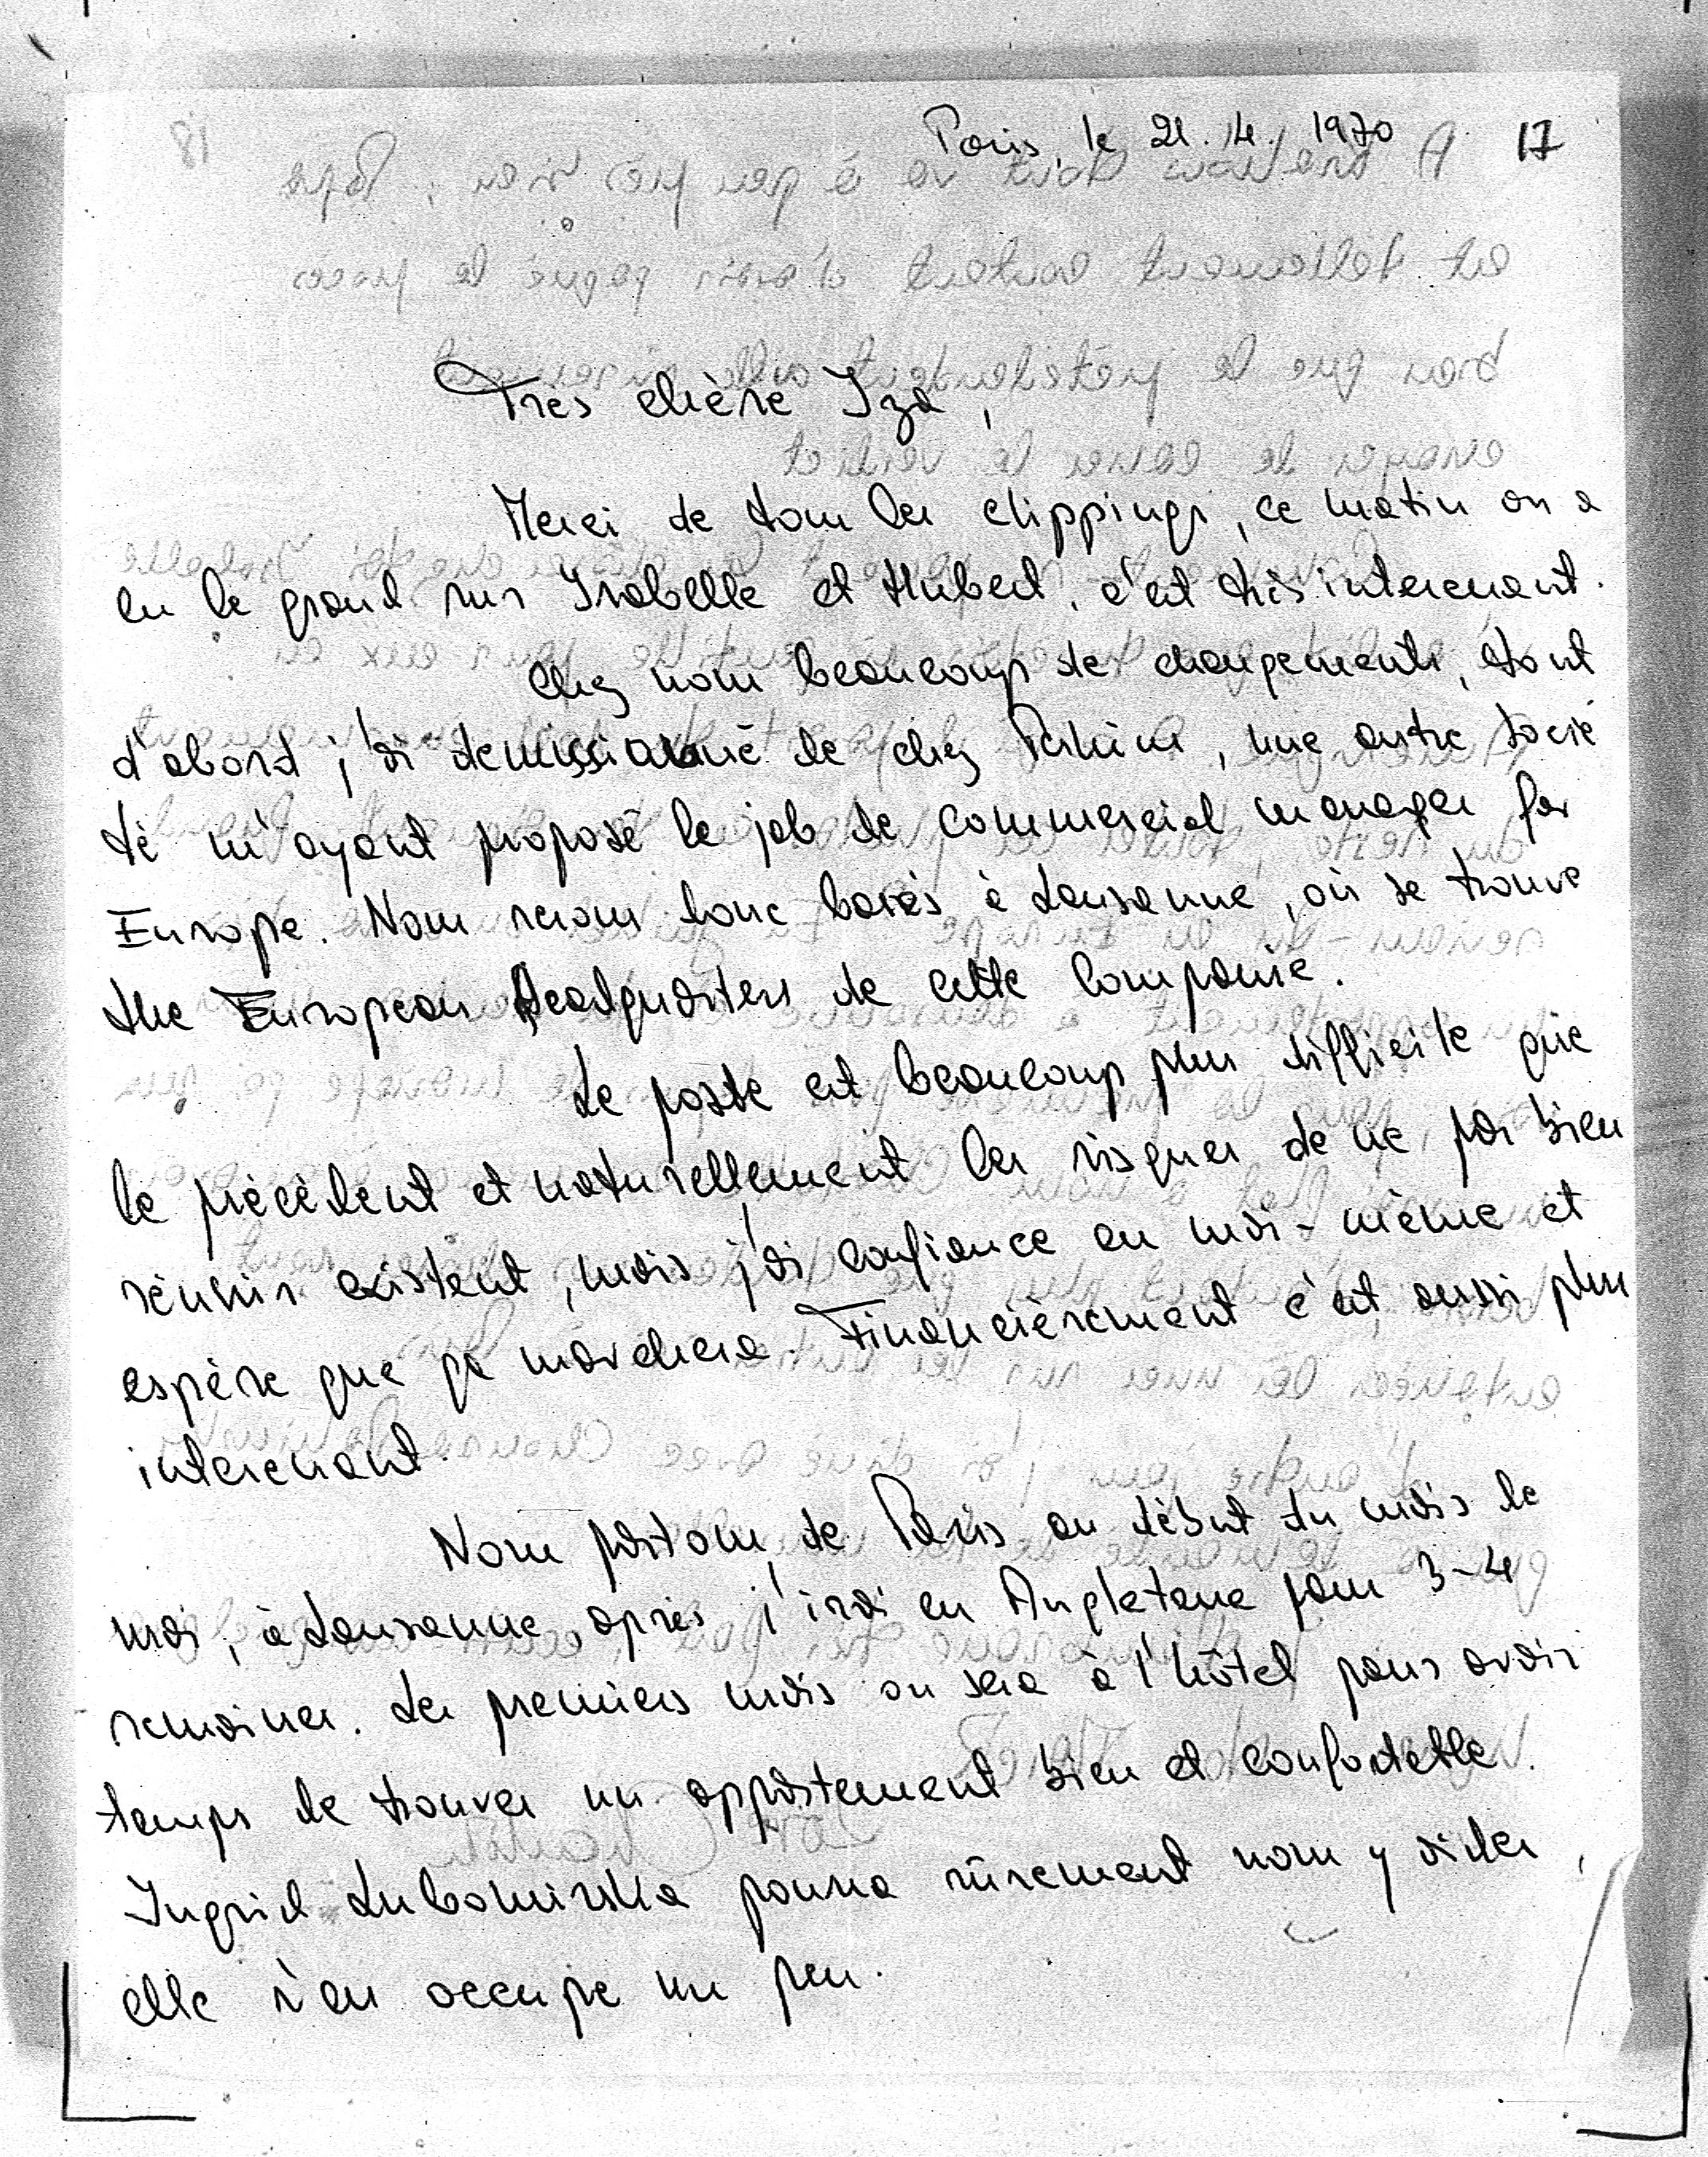 Paris, le 21.4.1970 17
Très chère Iza,
Merci de tous les clippings, ce matin on a
lu le grand sur Isabelle et Hubert, c'est très interessant.
Chez nous beaucoup de changements, tout
d'abord j'ai demissionné de chez, une autre socié
té m'ayant proposé le job de commercial manager for
Europe. Nous serons donc basés à Lausanne, où se trouve
the European Headquarters de cette Compagnie.
Le poste est beaucoup plus difficile que
le précédent et naturellement les risques de ne pas bien
réussir existent, mais j'ai confiance en moi-même et
espère que ça marchera. Financièrement c'est aussi plus
interessant.
Nous partons de Paris au début du mois de
mai, à Lausanne, après j'irai en Angleterre pour 3-4
semaines. Les premiers mois on sera à l'hôtel pour avoir
temps de trouver un appartement bien et confortable.
Ingrid Lubomirska pourra sûrement nous y aider,
elle s'en occupe un peu.